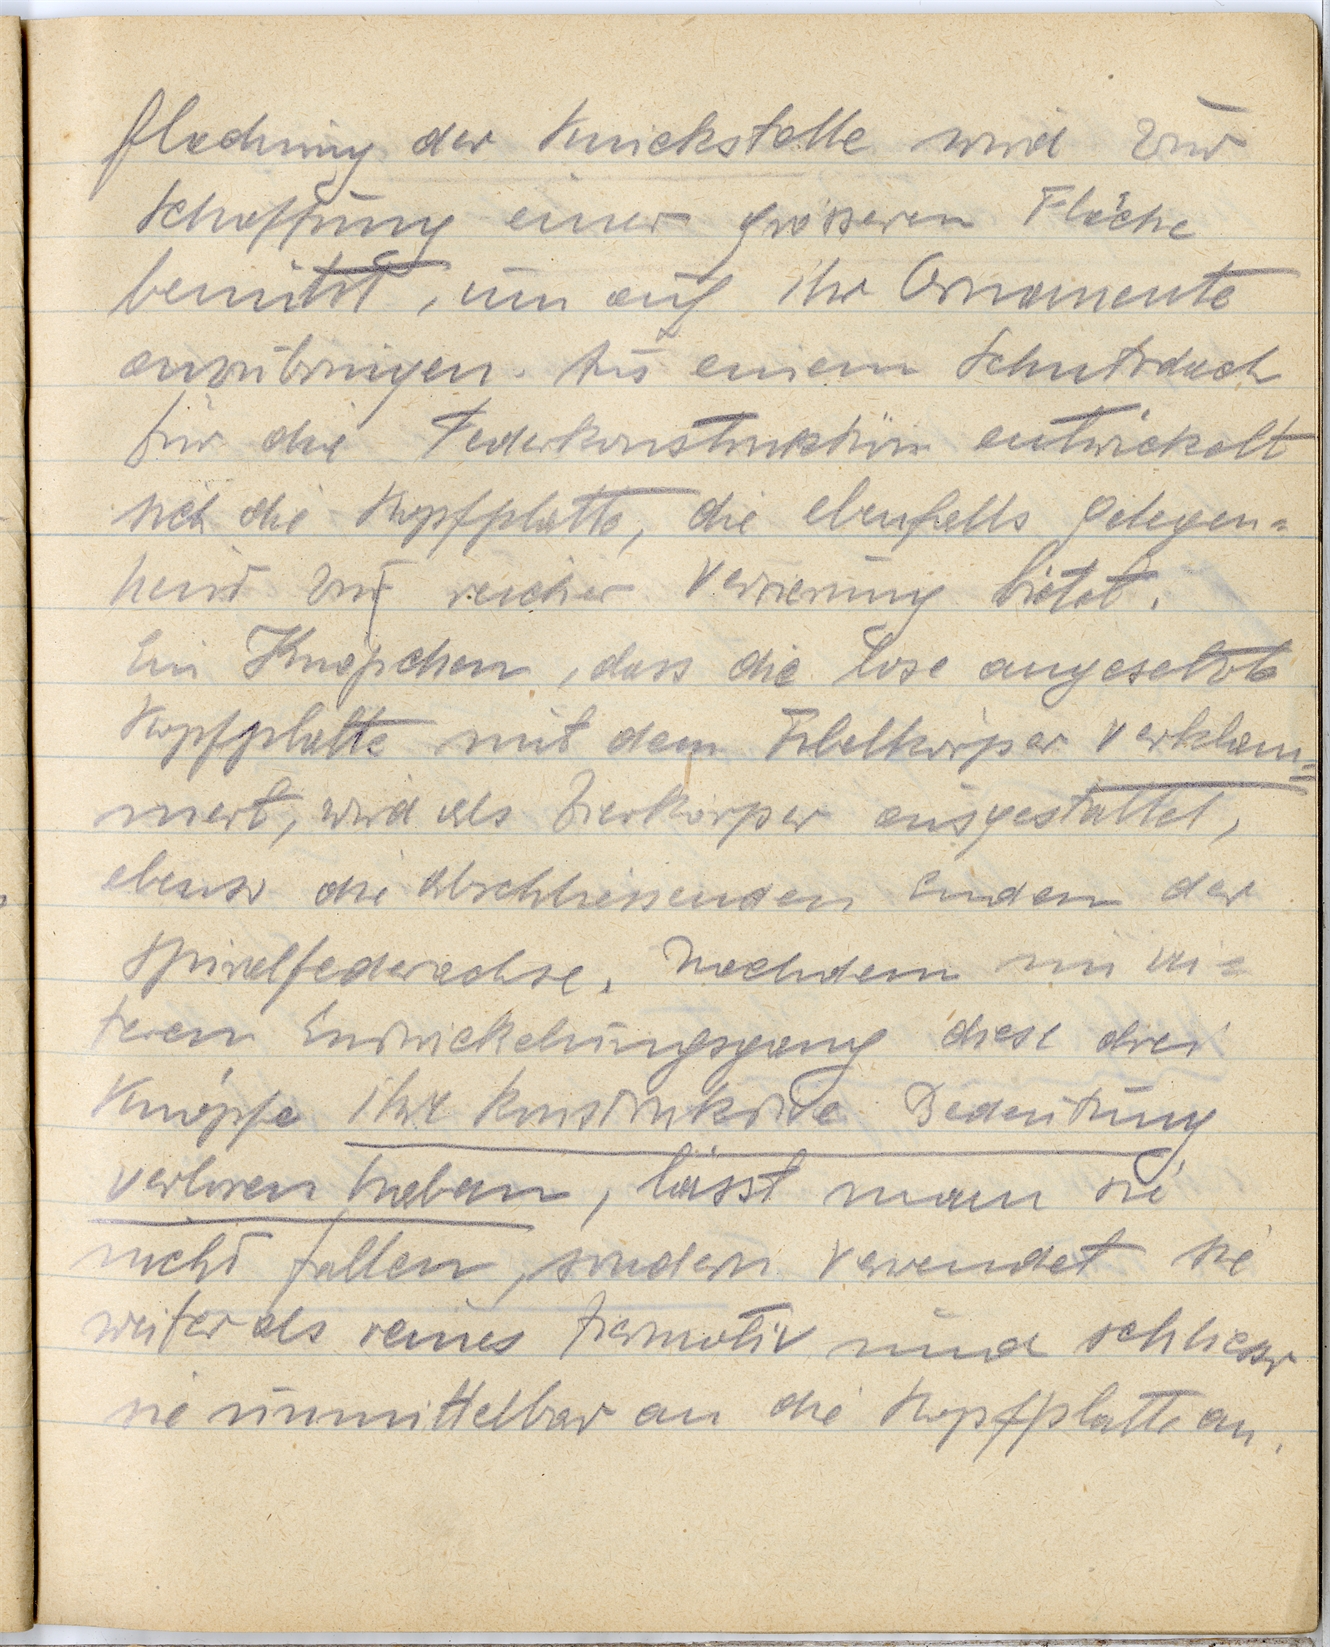 flachung der Knickstelle wird zur
Schaffung einer grösseren Fläche
benützt, um auf ihr Ornamente
anzubringen. Aus einem Schutzdach
für die Federkonstruktion entwickelt
sich die Kopfplatte, die ebenfalls Gelegen=
heit zur reicher Verzierung bietet.
Ein Knöpfchen, dass die lose angesetzte
Kopfplatte mit dem Fibelkörper verklam=
mert, wird als Zierkörper ausgestattet,
ebenso die abschliessenden Enden der
Spiralfederachse. Nachdem im wei=
teren Entwickelungsgang diese drei
Knöpfe ihre konstruktive Bedeutung
verloren haben, lässt man sie
nicht fallen, sondern verwendet sie
weiter als reines Ziermotiv und schliesst
sie unmittelbar an die Kopfplatte an.